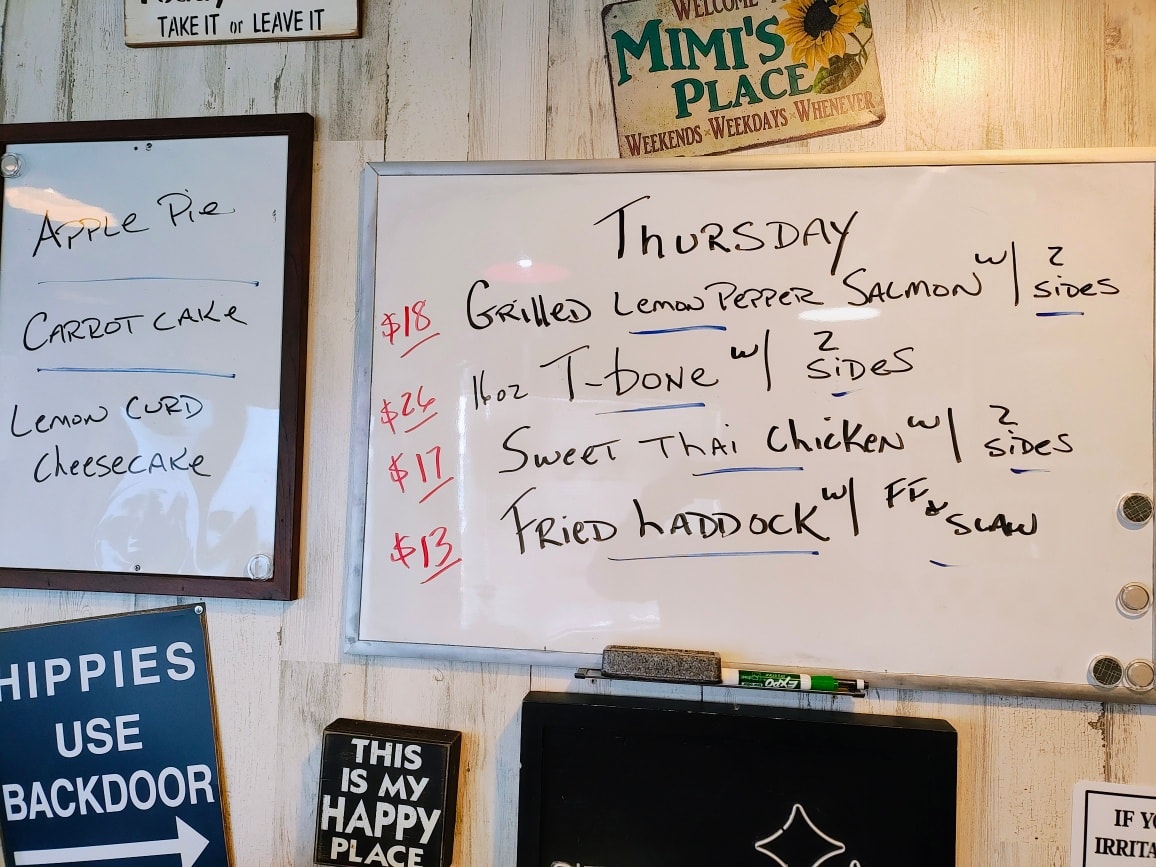 TAKE IT or LEAVE IT
WELCOME
MIMI'S
PLACE
WEEKENDS WEEKDAYS WHENEVER
APPLE PIE
CARROT CAKE
LEMON CURD
CHEESECAKE
THURSDAY
$18 GRILLED LEMON PEPPER SALMON W/ 2 SIDES
$26 16oz T-BONE W/ 2 SIDES
$17 SWEET THAI CHICKEN W/ 2 SIDES
$13 FRIED HADDOCK W/ FF & SLAW
EXPO
HIPPIES
USE
BACKDOOR
THIS
IS MY
HAPPY
PLACE
IF